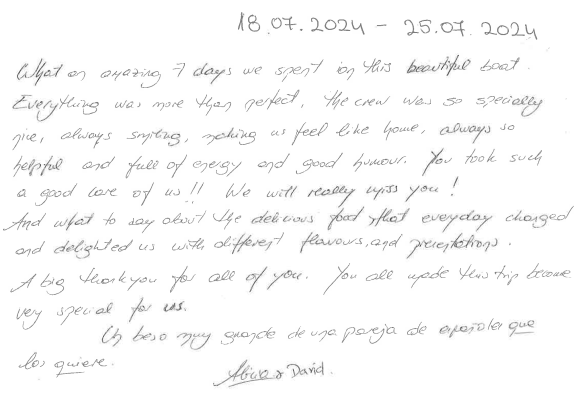 18.07.2024 - 25.07.2024
What an amazing 7 days we spent on this beautiful boat.
Everything was more than perfect, the crew was so specially
nice, always smiling, making us feel like home, always so
helpful and full of energy and good humour. You took such
a good care of us!! We will really miss you!
And what to say about the delicious food, that everyday changed
and delighted us with different flavours, and presentations.
A big thank you for all of you. You all made this trip become
very special for us.
Un beso muy grande de una pareja de españoles que
los quiere.
David.